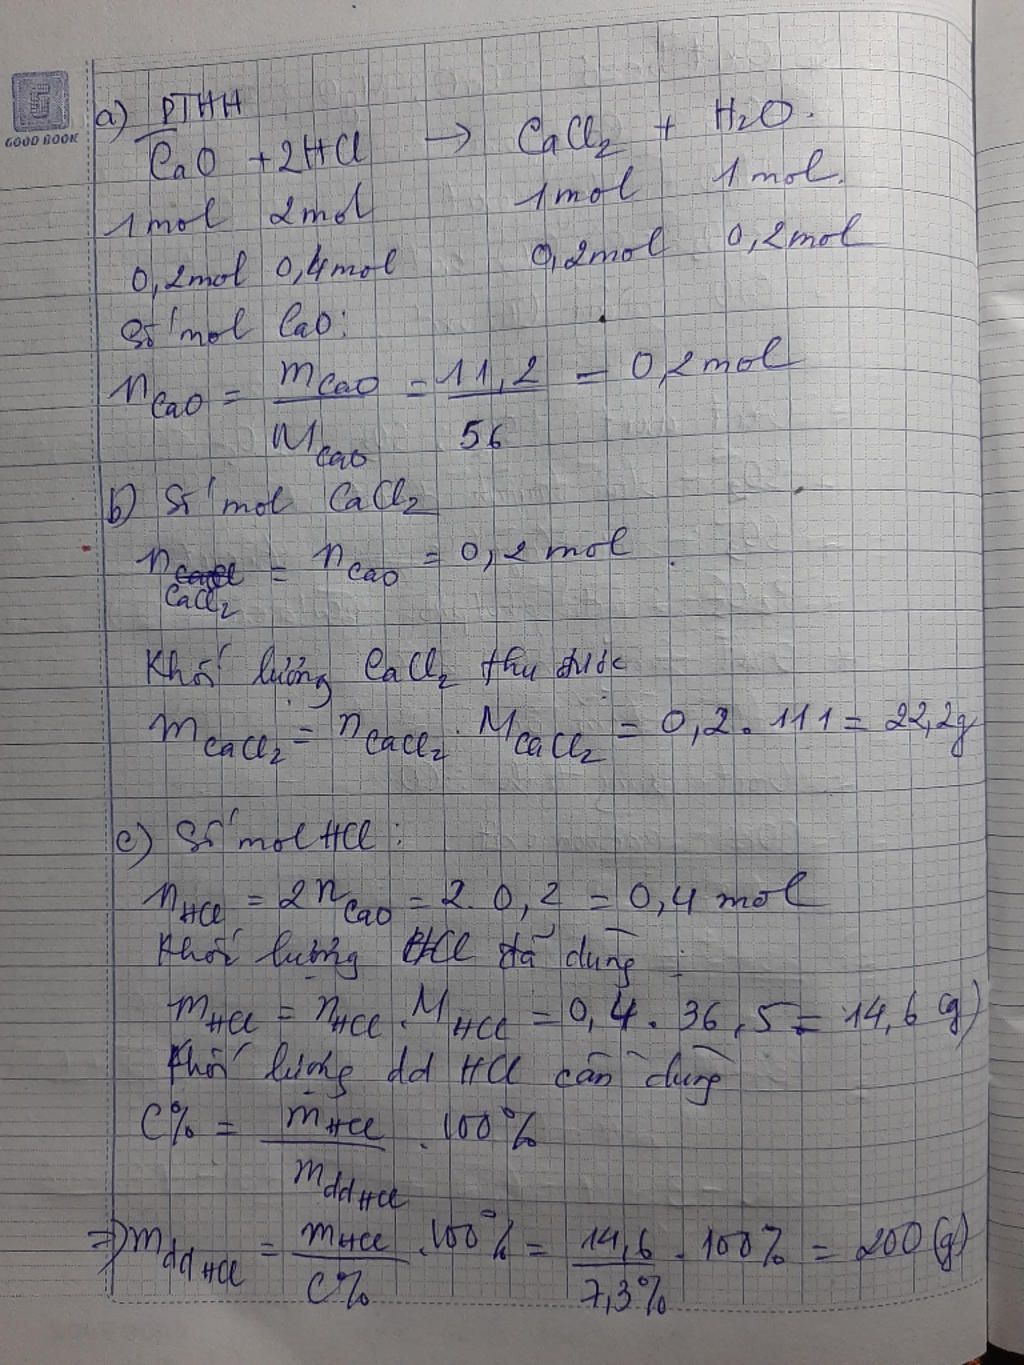 GOOD BOOK
a) PTHH
CaO + 2HCl → CaCl₂ + H₂O.
1mol 2mol 1mol 1mol.
0,2mol 0,4mol 0,2mol 0,2mol
Số mol CaO:
n CaO = m CaO / M CaO = 11,2 / 56 = 0,2mol
b) Số mol CaCl₂
n CaCl₂ = n CaO = 0,2 mol
Khối lượng CaCl₂ thu được
m CaCl₂ = n CaCl₂ . M CaCl₂ = 0,2 . 111 = 22,2g
c) Số mol HCl:
n HCl = 2 n CaO = 2. 0,2 = 0,4 mol
Khối lượng HCl đã dùng :
m HCl = n HCl . M HCl = 0,4. 36,5 = 14,6 (g)
Khối lượng dd HCl cần dùng
C% = m HCl / m dd HCl . 100%
⇒) m dd HCl = m HCl / C% . 100% = 14,6 / 7,3% . 100% = 200 (g)